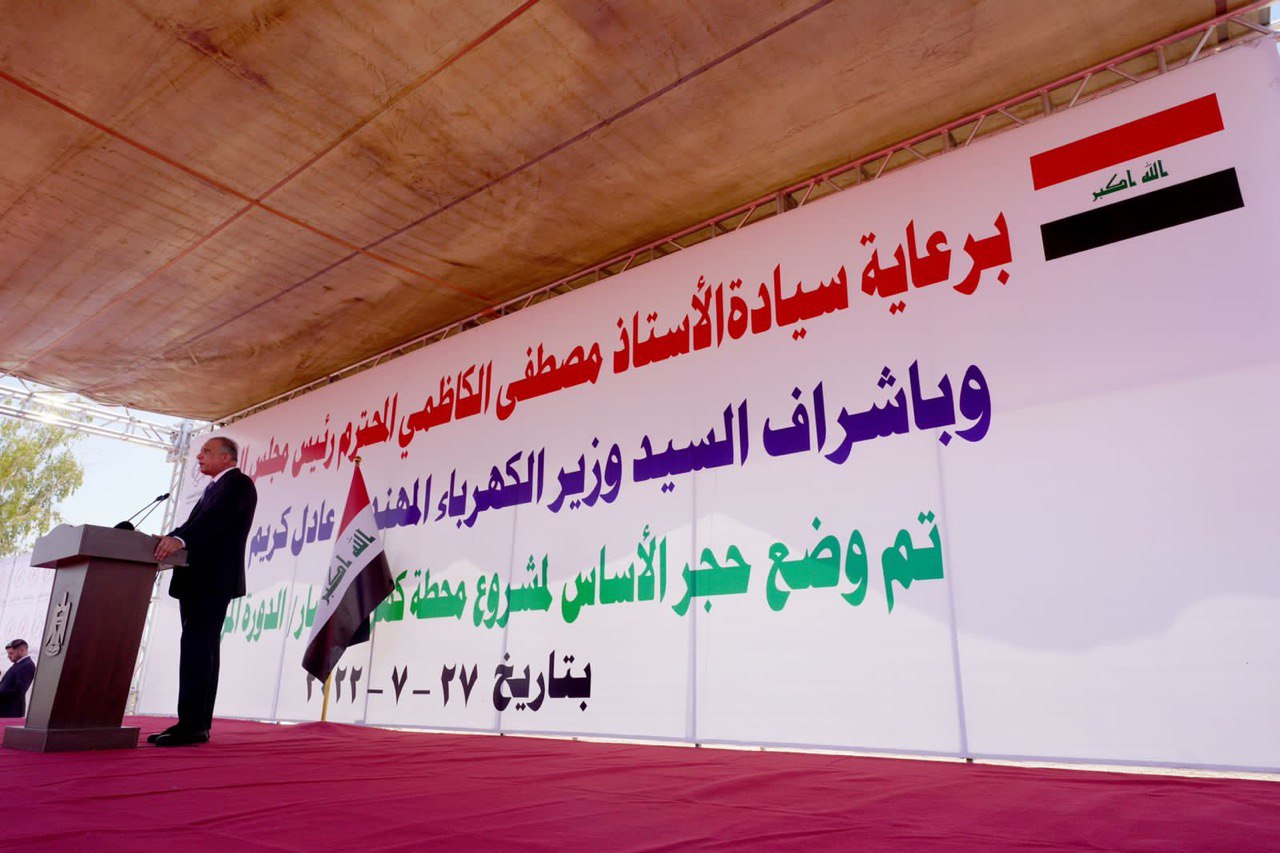 الله اكبر
برعاية سيادة الأستاذ مصطفى الكاظمي المحترم رئيس مجلس
وباشراف السيد وزير الكهرباء عادل كريم
تم وضع حجر الأساس لمشروع محطة / الدورة
بتاريخ ٢٧-٧-
الله اكبر